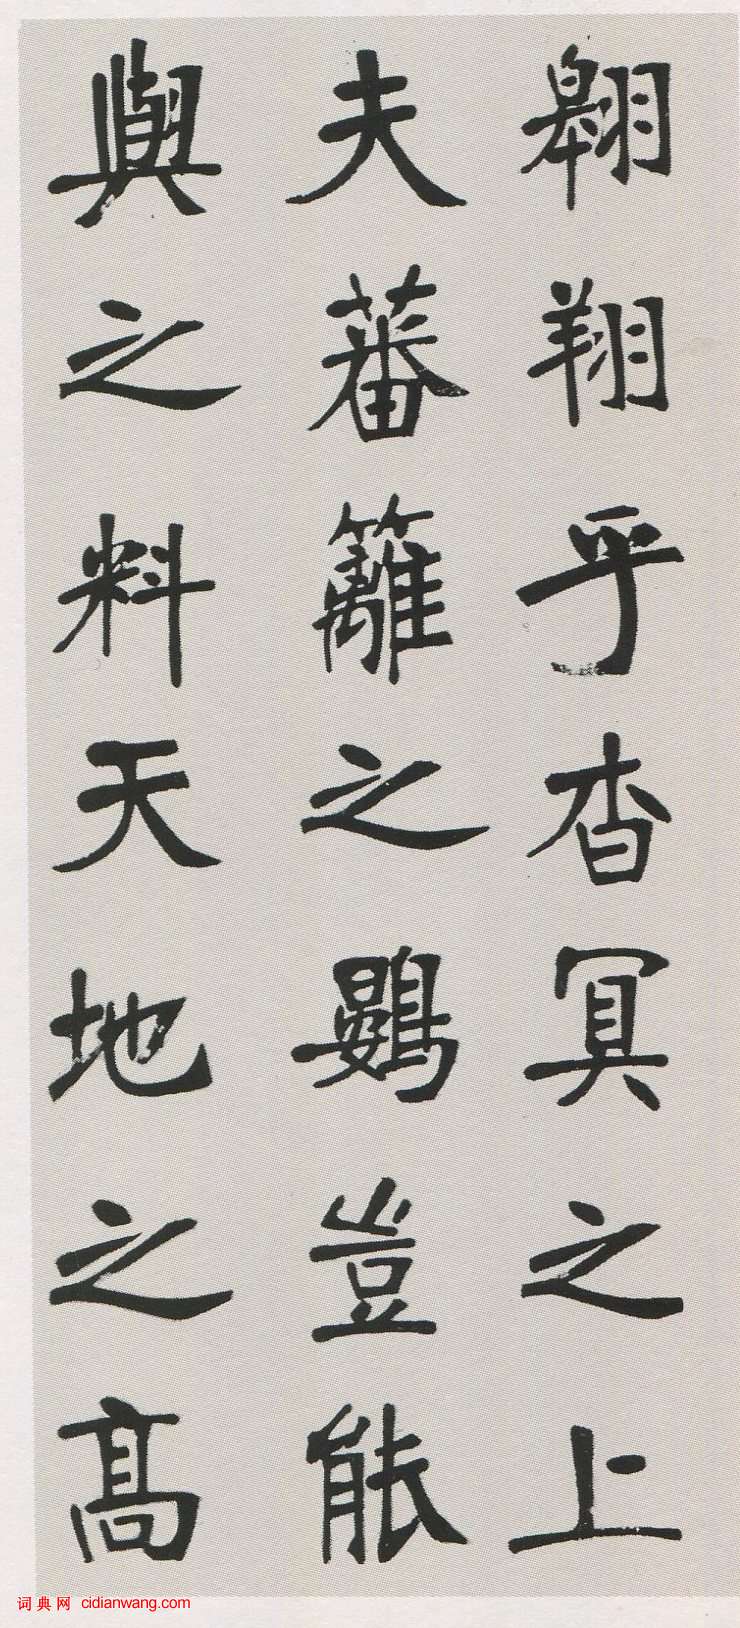 翱翔乎杳冥之上
夫蕃籬之鷃豈能
與之料天地之高
词典网 cidianwang.com